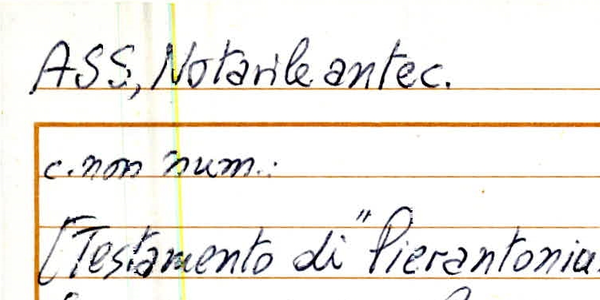 ASS, Notarile antec.
c. non num.:
[Testamento di "Pierantonia